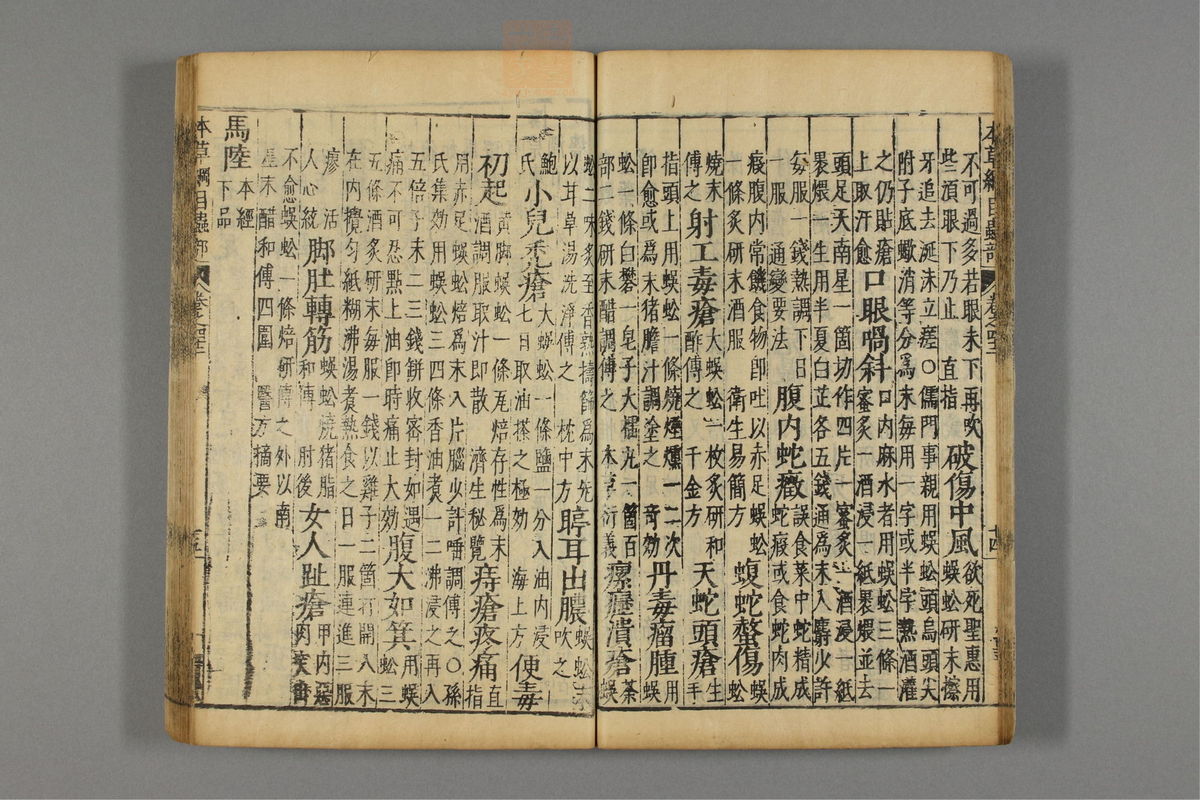 本草綱目蟲部 卷之四十二 十四
不可過多若眼未下再吹
些須眼下乃止 直指
破傷中風
欲死聖惠用
蜈蚣研末擦
牙追去涎沫立瘥○儒門事親用蜈蚣頭烏頭尖
附子底蠍消等分爲末每用一字或半字熱酒灌
之仍貼瘡
上取汗愈
口眼喎斜
口內麻木者用蜈蚣三條一
蜜炙一酒浸一紙裹煨並去
頭足天南星一箇切作四片一蜜炙一酒浸一紙
裹煨一生用半夏白芷各五錢通爲末入麝少許
每服一錢熱調下日
一服 通變要法
腹內蛇癥
誤食菜中蛇精成
蛇瘕或食蛇肉成
瘕腹內常饑食物即吐以赤足蜈蚣
一條炙研末酒服 衛生易簡方
蝮蛇螫傷
蜈
蚣
燒末
傅之
射工毒瘡
大蜈蚣一枚炙研和
酢傅之 千金方
天蛇頭瘡
生
指頭上用蜈蚣一條燒煙熏一二次
即愈或爲末猪膽汁調塗之 奇効
丹毒瘤腫
用
蜈
蚣一條白礬一皂子大丸一箇百
部二錢研末醋調傅之 本草衍義
瘰癧潰瘡
茶
蜈
蚣二味炙至香熟擣篩爲末先
以甘草湯洗淨傅之 枕中方
聤耳出膿
蜈蚣末
吹之
鮑
氏
小兒禿瘡
大蜈蚣一條鹽一分入油內浸
七日取油搽之極効 海上方
便毒
初起
黃脚蜈蚣一條瓦焙存性爲末
酒調服取汁即散 濟生秘覽
痔瘡疼痛
直
指
用赤足蜈蚣焙爲末入片腦少許唾調傅之○孫
氏集効用蜈蚣三四條香油煮一二沸浸之再入
五倍子末二三錢餅收密封如遇
痛不可忍點上油即時痛止大効
腹大如箕
用蜈
蚣三
五條酒炙研末每服一錢以雞子二箇打開入末
在內攪勻紙糊沸湯煮熟食之日一服連進三服
瘳 活
人心統
脚肚轉筋
蜈蚣燒猪脂
和傅 肘後
女人趾瘡
甲內惡
肉突出
不愈蜈蚣一條焙研傅之外以南
星末醋和傅四圍 醫方摘要
馬陸
本經
下品
本草綱目蟲部 卷之四十二